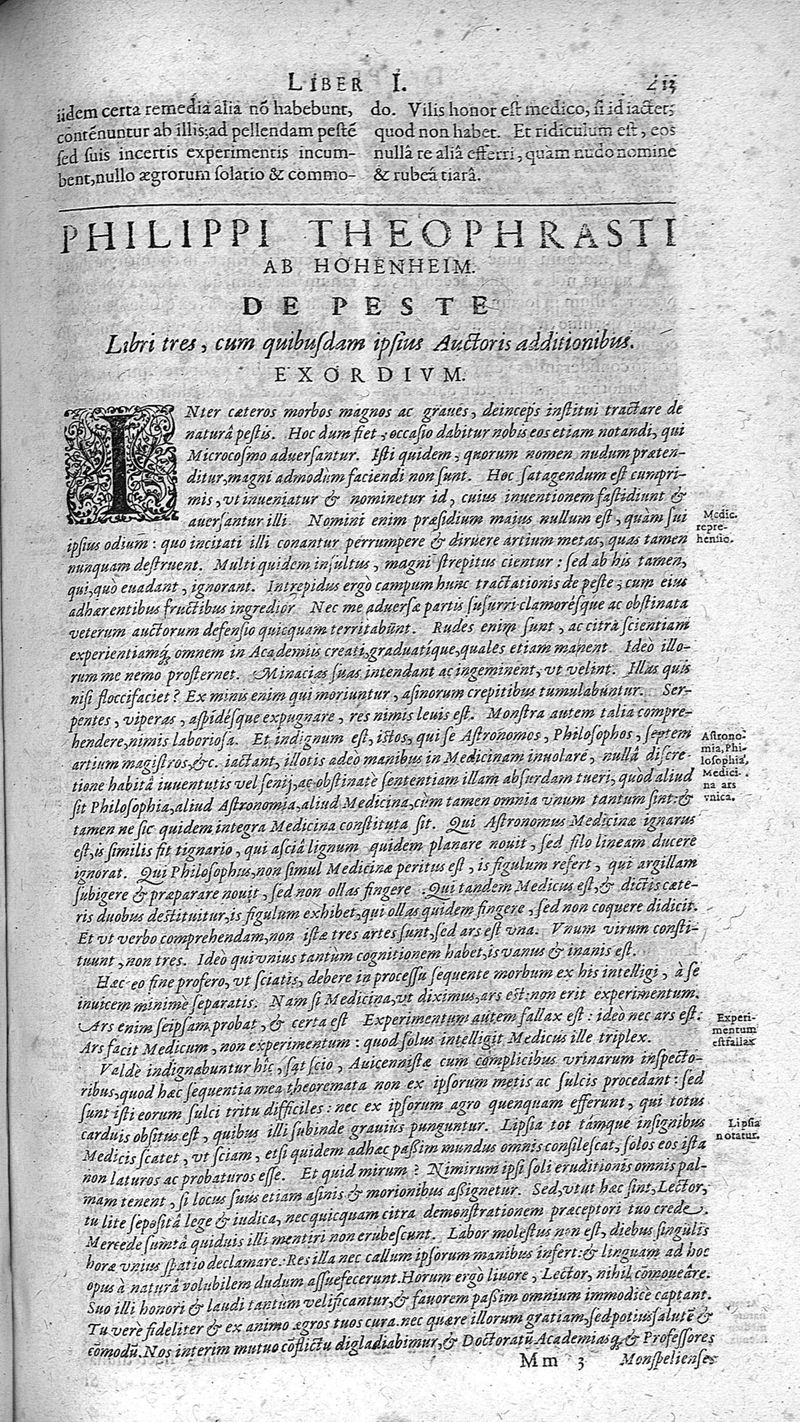 LIBER I. 413
iidem certa remedia alia nō habebunt,
contēnuntur ab illis; ad pellendam pestē
sed suis incertis experimentis incum-
bent, nullo ægrorum solatio & commo-
do. Vilis honor est medico, si id iactet;
quod non habet. Et ridiculum est, eos
nullâ re aliâ efferri, quàm nudo nomine
& rubeâ tiarâ.
PHILIPPI THEOPHRASTI
AB HOHENHEIM.
DE PESTE
Libri tres, cum quibusdam ipsius Auctoris additionibus.
EXORDIVM.
INter cæteros morbos magnos ac graues, deinceps institui tractare de
naturâ pestis. Hoc dum fiet, occasio dabitur nobis eos etiam notandi, qui
Microcosmo aduersantur. Isti quidem, quorum nomen nudum præten-
ditur, magni admodùm faciendi non sunt. Hoc satagendum est cumpri-
mis, vt inueniatur & nominetur id, cuius inuentionem fastidiunt &
auersantur illi. Nomini enim præsidium maius nullum est, quàm sui
ipsius odium: quo incitati illi conantur perrumpere & diruere artium metas, quas tamen
nunquam destruent. Multi quidem insultus, magni strepitus cientur: sed ab his tamen,
qui, quò euadant, ignorant. Intrepidus ergò campum hunc tractationis de peste, cum eius
adhærentibus fructibus ingredior Nec me aduersæ partis susurri clamorésque ac obstinata
veterum auctorum defensio quicquam territabūnt. Rudes enim sunt, ac citrà scientiam
experientiamq́; omnem in Academiis creati, graduatique, quales etiam manent. Ideò illo-
rum me nemo prosternet. Minacias suas intendant ac ingeminent, vt velint. Illas quis
nisi floccifaciet? Ex minis enim qui moriuntur, asinorum crepitibus tumulabuntur. Ser-
pentes, viperas, aspidésque expugnare, res nimis leuis est. Monstra autem talia compre-
hendere, nimis laboriosa. Et indignum est, istos, qui se Astronomos, Philosophos, septem
artium magistros, &c. iactant, illotis adeò manibus in Medicinam inuolare, nullâ discre-
tione habitâ iuuentutis vel senij, ac obstinatè sententiam illam absurdam tueri, quòd aliud
sit Philosophia, aliud Astronomia, aliud Medicina, cùm tamen omnia vnum tantum sint: &
tamen ne sic quidem integra Medicina constituta sit. Qui Astronomus Medicinæ ignarus
est, is similis fit tignario, qui asciâ lignum quidem planare nouit, sed filo lineam ducere
ignorat. Qui Philosophus, non simul Medicinæ peritus est, is figulum refert, qui argillam
subigere & præparare nouit, sed non ollas fingere. Qui tandem Medicus est, & dictis cæte-
ris duobus destituitur, is figulum exhibet, qui ollas quidem fingere, sed non coquere didicit.
Et vt verbo comprehendam, non istæ tres artes sunt, sed ars est vna. Vnum virum consti-
tuunt, non tres. Ideò qui vnius tantum cognitionem habet, is vanus & inanis est.
Hæc eo fine profero, vt sciatis, debere in processu sequente morbum ex his intelligi, à se
inuicem minimè separatis. Nam si Medicina, vt diximus, ars est: non erit experimentum.
Ars enim seipsam probat, & certa est Experimentum autem fallax est: ideò nec ars est:
Ars facit Medicum, non experimentum: quod solus intelligit Medicus ille triplex.
Valdè indignabuntur hîc, sat scio, Auicennistæ cum complicibus vrinarum inspecto-
ribus, quod hæc sequentia mea theoremata non ex ipsorum metis ac sulcis procedant: sed
sunt isti eorum sulci tritu difficiles: nec ex ipsorum agro quenquam efferunt, qui totus
carduis obsitus est, quibus illi subinde grauius punguntur. Lipsia tot támque insignibus
Medicis scatet, vt sciam, etsi quidem adhæc passim mundus omnis consilescat, solos eos ista
non laturos ac probaturos esse. Et quid mirum? Nimirum ipsi soli eruditionis omnis pal-
mam tenent, si locus suus etiam asinis & morionibus assignetur. Sed, vtut hæc sint, Lector,
tu lite sepositâ lege & iudica, nec quicquam citra demonstrationem præceptori tuo crede.
Mercede sumtâ quiduis illi mentiri non erubescunt. Labor molestus non est, diebus singulis
horæ vnius spatio declamare. Res illa nec callum ipsorum manibus infert: & linguam ad hoc
opus à naturâ volubilem dudum assuefecerunt. Horum ergò liuore, Lector, nihil cōmoueâre.
Suo illi honori & laudi tantùm velificantur, & fauorem passim omnium immodicè captant.
Tu verè fideliter & ex animo ægros tuos cura. nec quære illorum gratiam, sed potius salutē &
cōmodū. Nos interim mutuo cōflictu digladiabimur, & Doctoratū Academiasq́; & Professores
Mm 3 Monspelienses
Medic.
repre-
hensio.
Astrono-
mia, Phi-
losophia,
Medici-
na ars
vnica.
Experi-
mentum
est fallax
Lipsia
notatur.